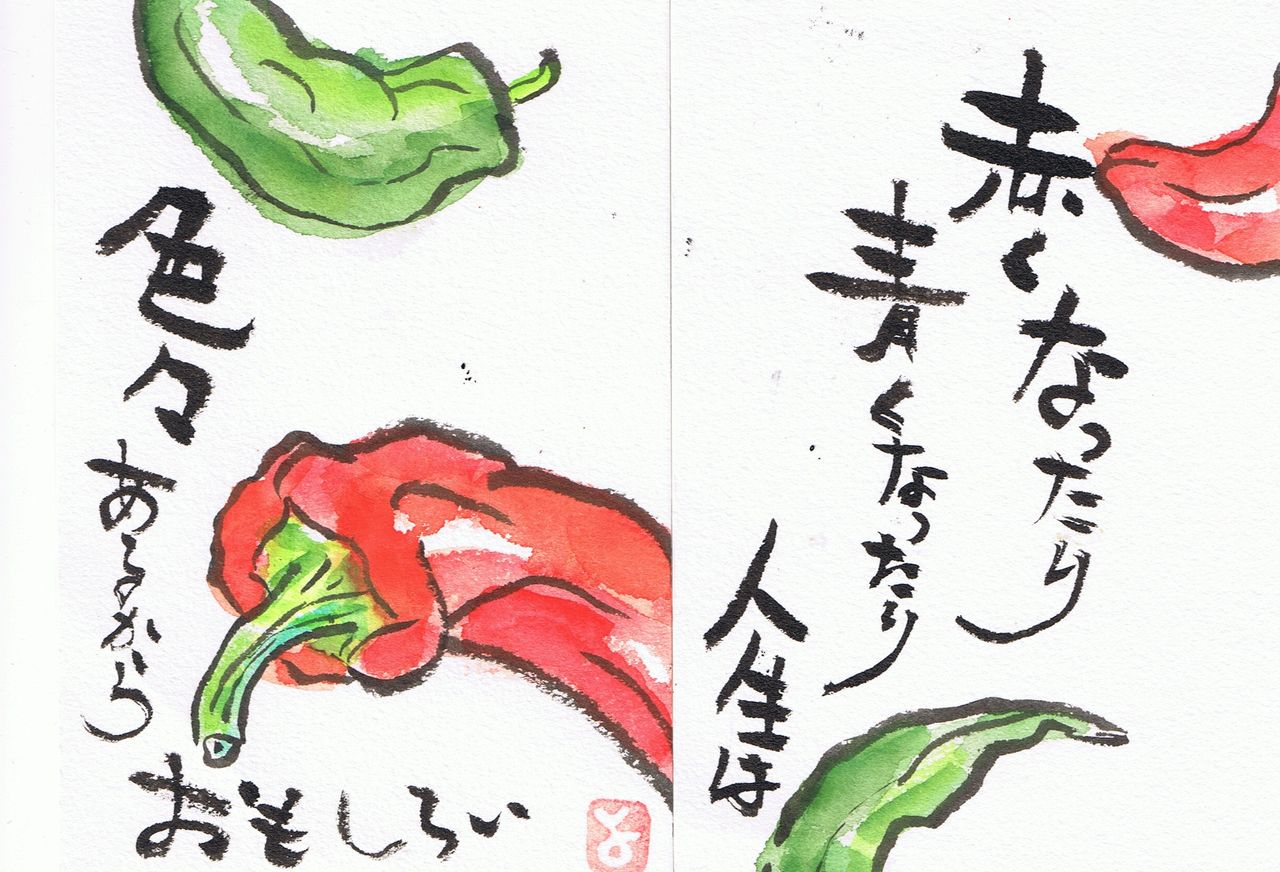 赤くなったり
青くなったり
人生は
色々
あるから
おもしろい
よ